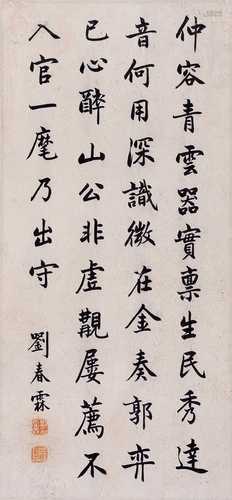 仲容青雲器實禀生民秀達
音何用深識微在金奏郭弈
已心醉山公非虛覯屡薦不
入官一麾乃出守
劉春霖